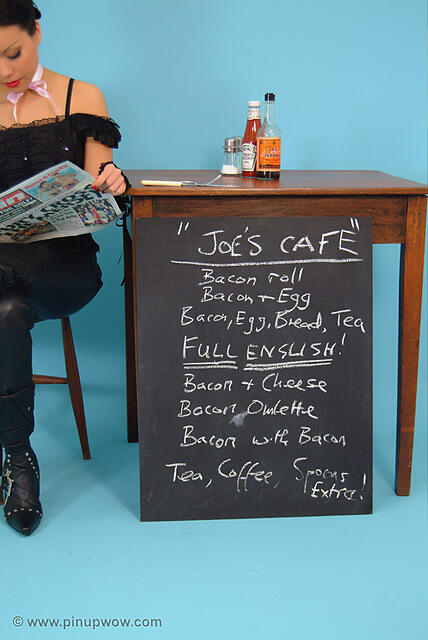 "JOE'S CAFE"
Bacon roll
Bacon + Egg
Bacon, Egg, Bread, Tea
FULL ENGLISH!
Bacon + Cheese
Bacon Omlette
Bacon with Bacon
Tea, Coffee, Spoons
Extra!
HEINZ
© www.pinupwow.com